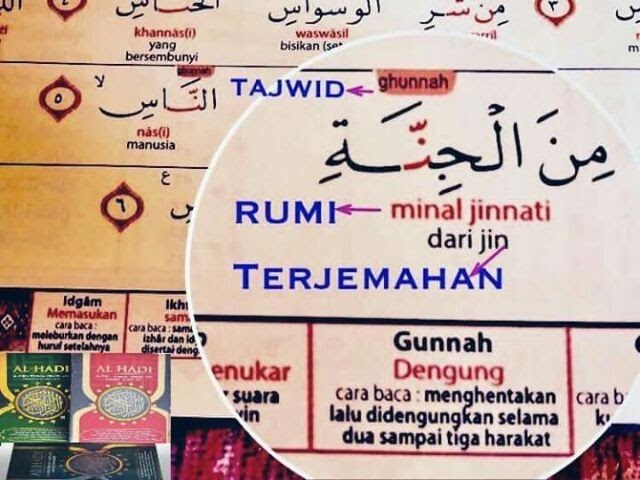 ٣
مِن شَرِّ
الْوَسْوَاسِ
الْخَنَّاسِ
waswāsil
khannās(i)
yang
bersembunyi
bisikan
ghunnah
النَّاسِ ۙ ٥
nās(i)
manusia
ع
٦
TAJWID
ghunnah
مِنَ الْجِنَّةِ
RUMI
minal jinnati
dari jin
TERJEMAHAN
Idgâm
Memasukan
cara baca :
meleburkan dengan
huruf setelahnya
cara baca :
izhâr dan
disertai
enukar
suara
Gunnah
Dengung
cara baca : menghentakan
lalu didengungkan selama
dua sampai tiga harakat
cara
AL-HADI
AL HADI